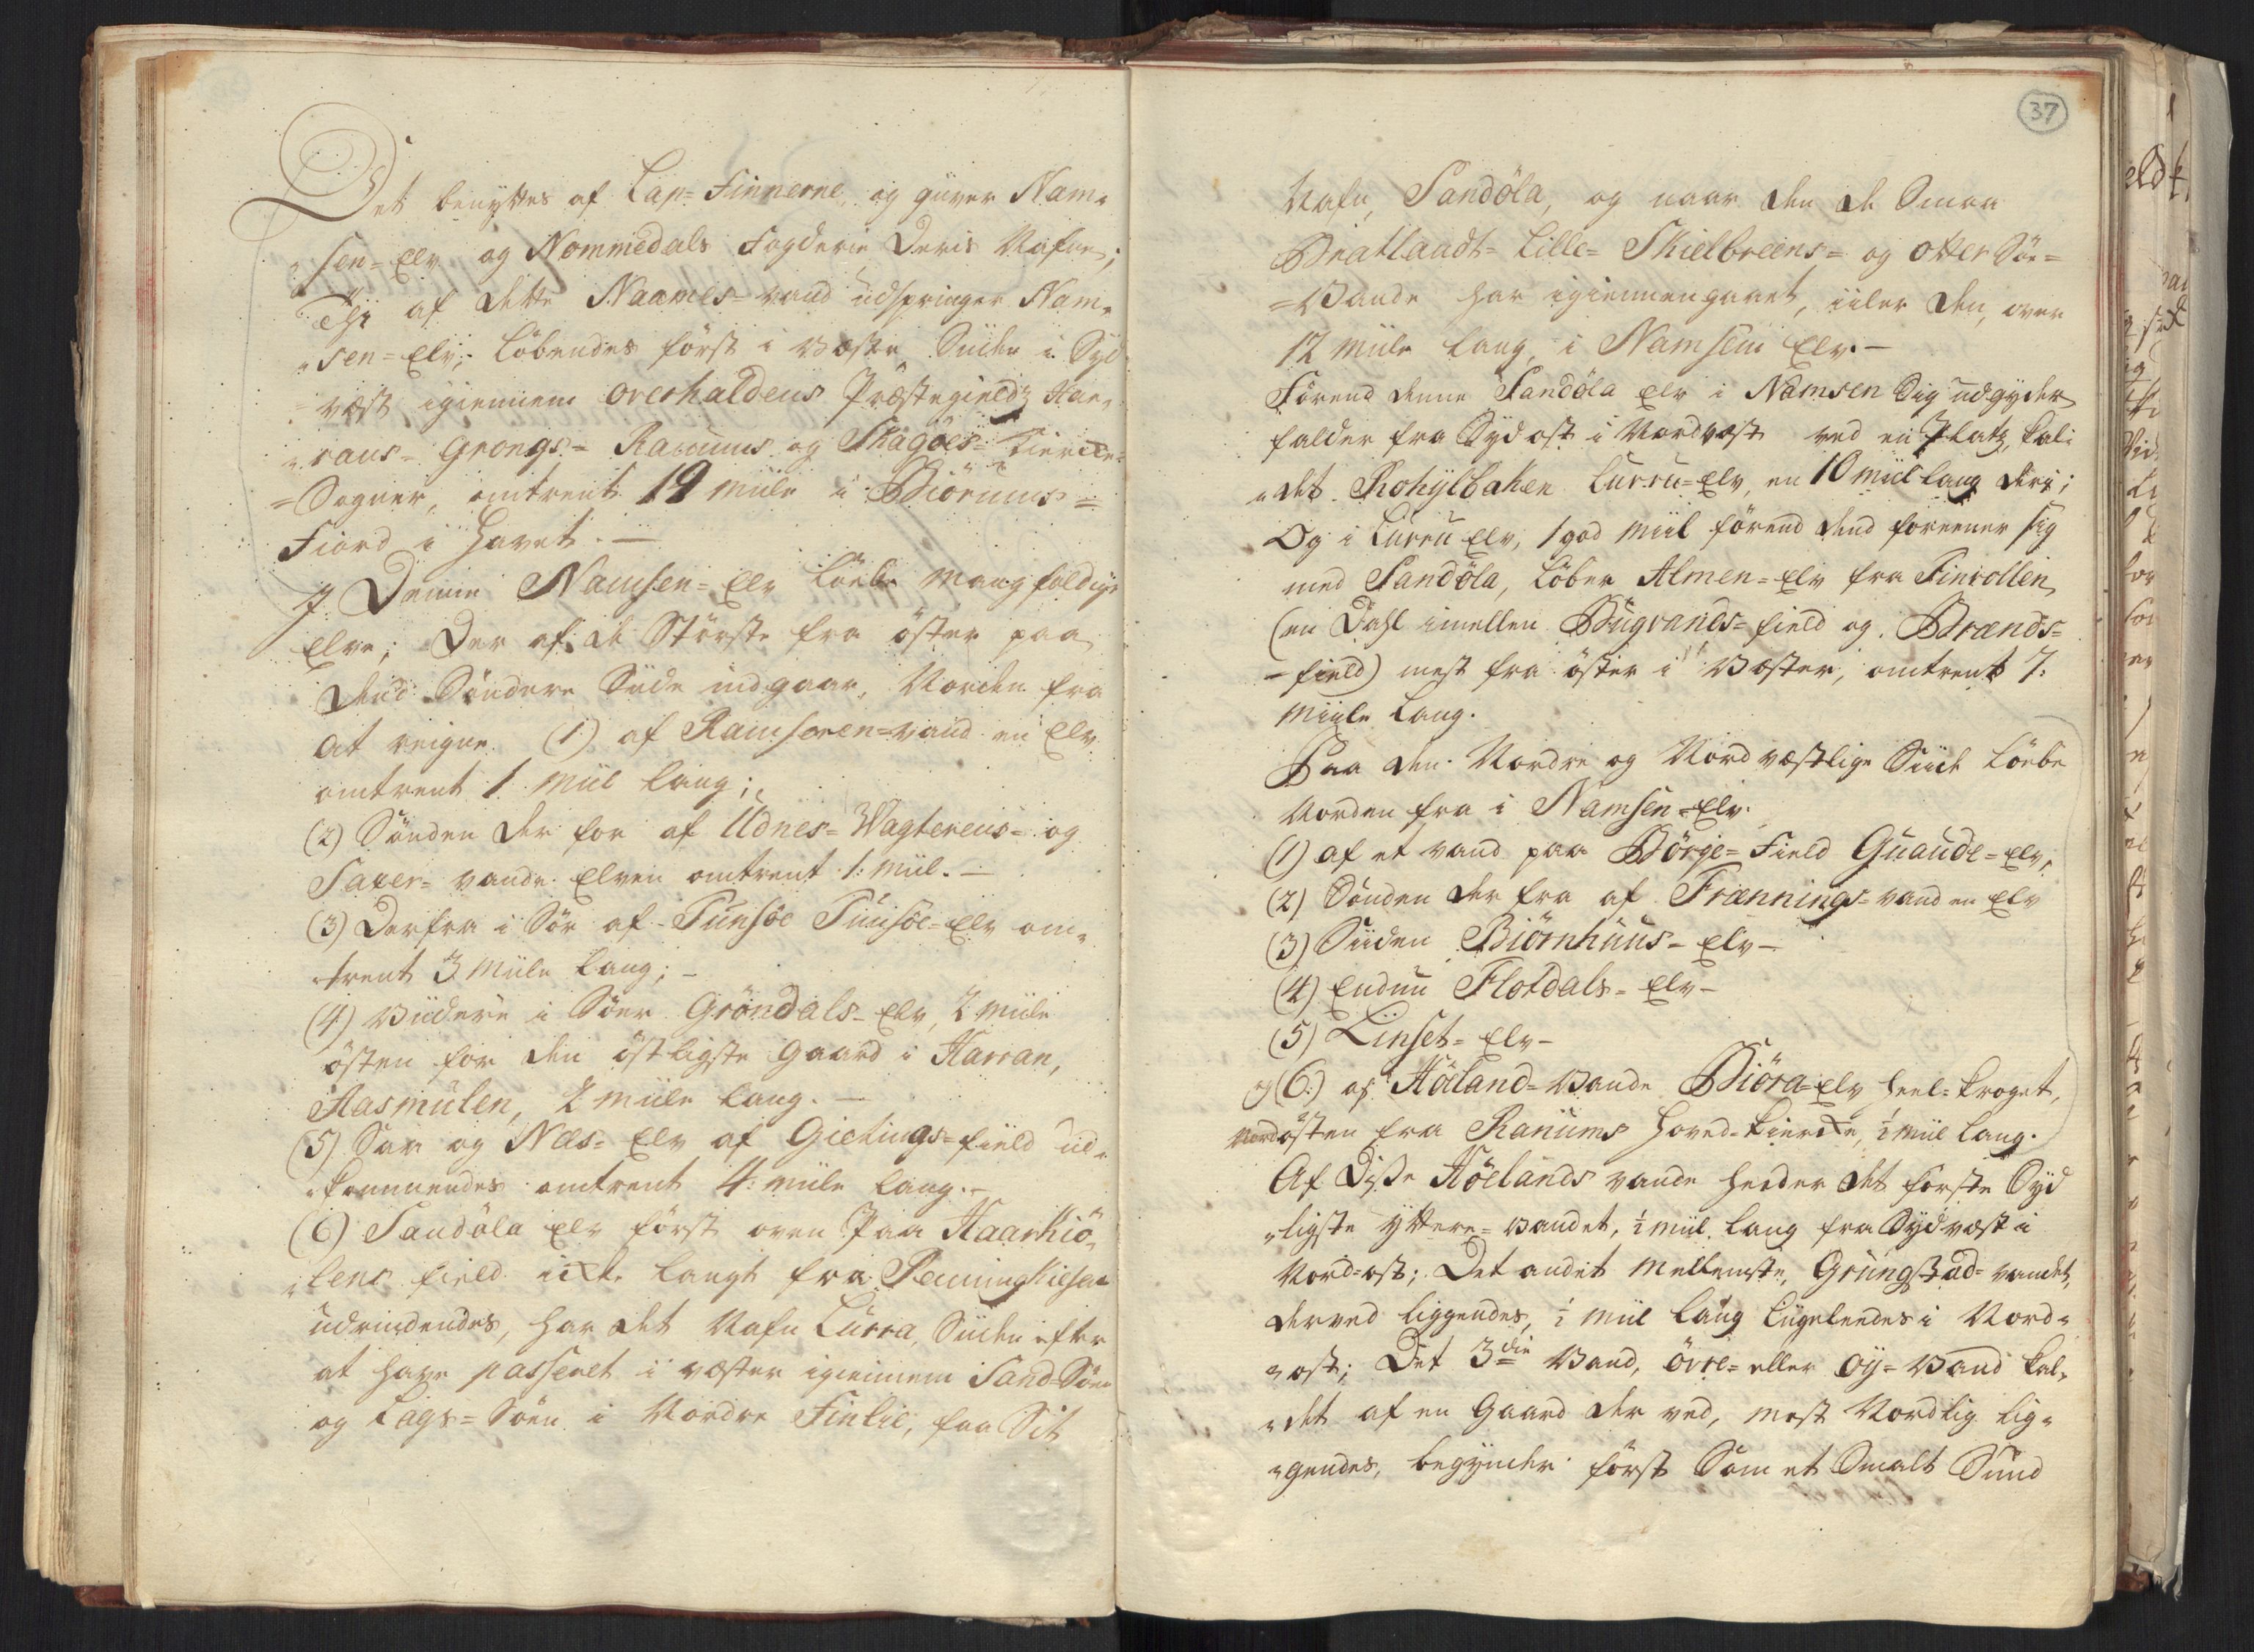 Det benyttes af Lap-Finnerne, og giver Nam-
sen-Elv og Nommedals Fogderie Deris Nafne;
Thi af dette Naames-vand udspringer Nam-
sen-Elv, Löbendes först i Væster Siden i Syd
væst igiennem Overhaldens Præstegields Har-
rans- Grongs- Ranums og Skages- Kiercke-
=Sogner, omtrent 19 Miile i Biörums=
Fiord i Havet. —
I Denne Namsen-Elv Löebe mangfoldige
Elve; Der af de Störste fra öster paa
dend Söndere Siide indgaar, Norden fra
at reigne. (1) af Ramseren-vand en Elv
omtrent 1 Miil lang;
(2) Sönden der for af Udnes- Wagterens- og
Saxer- vande Elven omtrent 1: Miil. —
(3) Derfra i Sör af Tunsöe Tunsöe-Elv om-
trent 3 Miile lang; —
(4) Viidere i Söer Gröndals-Elv, 2 Miile
östen for den östligste Gaard i Harran,
Aasmulen, 2 Miile lang. —
(5) Saa og Nees-Elv af Gietings-field ud-
kommendes omtrent 4: Miile lang. —
(6) Sandöla Elv först oven Paa Haarkiö-
lens field icke langt fra Penningkiesen
udrindendes, har det Nafn Lurra, Siiden efter
at have passeret i væster igiennem Sand-Söen
og Lags-Söen i Nordre Finlie, faa Sit
37
Nafn, Sandöla, og naar den de Smaa
Bratlandt- Lille- Skielbreens- og Otter Sör-
=Vande har igiennemgaaet, iiler den, over
12 Miile lang, i Namsen Elv. —
Förend denne Sandöla Elv i Namsen Sig udgyder
falder fra Sydost i Nordvæst ved en Platz, kal-
det Rohylbaken Lurru-Elv, en 10 Miil lang deri;
Og i Lurru Elv, 1 god Miil förend dend foreener sig
med Sandöla, Löber Almen-Elv fra Finvollen
(en Dahl imellem Bugvands-field og Brænds-
-field) mest fra öster i Væster, omtrent 7:
Miile lang.
Paa den Nordre og Nordvæstlige Siide Löebe
Norden fra i Namsen-Elv.
(1) af et vand paa Börge-Field Guande-Elv,
(2) Sönden der fra af Frænnings-vand en Elv
(3) Siiden Biörnhuus- Elv —
(4) Endnu Flotdals- Elv —
(5) Linset- Elv —
og (6:) af Höeland-Vande Biöra-Elv heel-kroget,
Nordösten fra Ranums Hoved-Kiercke, ½ Miil lang.
Af Disse Höelands vande heeder det förste Syd
ligste Yttere-Vandet, ½ Miil lang fra Sydvæst i
Nord-ost; Det andet Mellemste, Grungstad-vandet,
derved liggendes, ½ Miil lang Liigeleedes i Nord-
ost; Det 3die Vand, övre- eller Öy-Vand kal-
det af en Gaard der ved, mest Nordlig lig-
gendes, begynder först Som et Smalt Sund